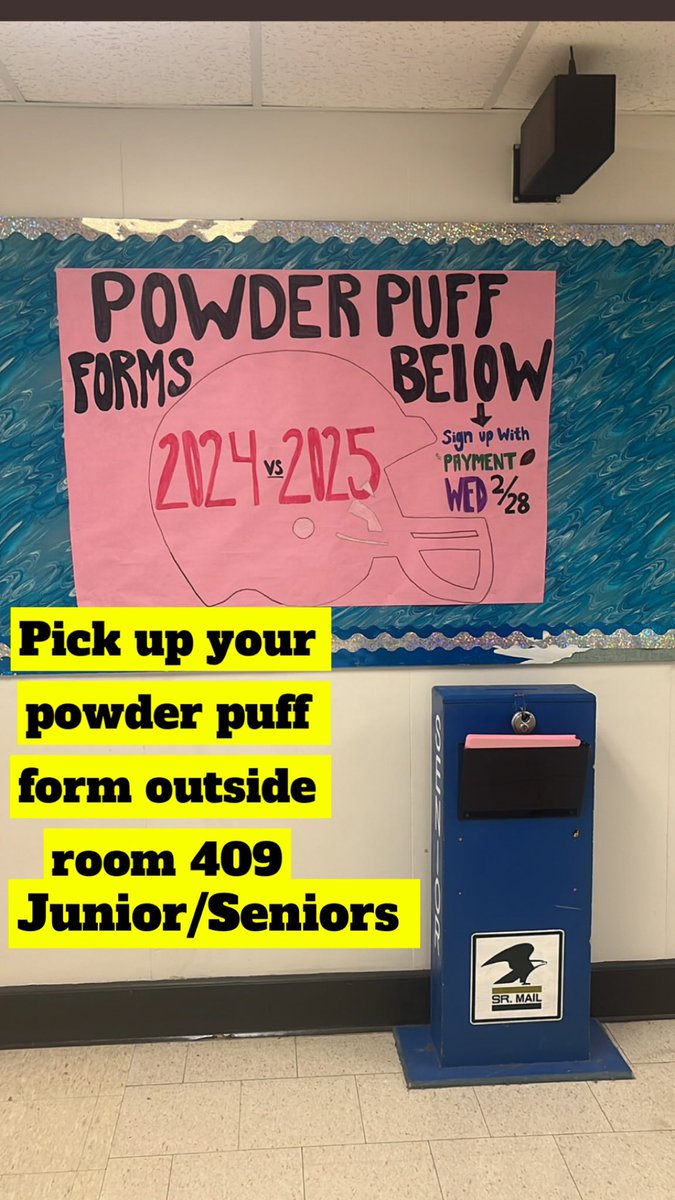 POWDER PUFF
FORMS BElOW
2024 vs 2025
Sign up With
PAYMENT
WED 2/28
Pick up your
powder puff
form outside
room 409
Junior/Seniors
SR. MAIL